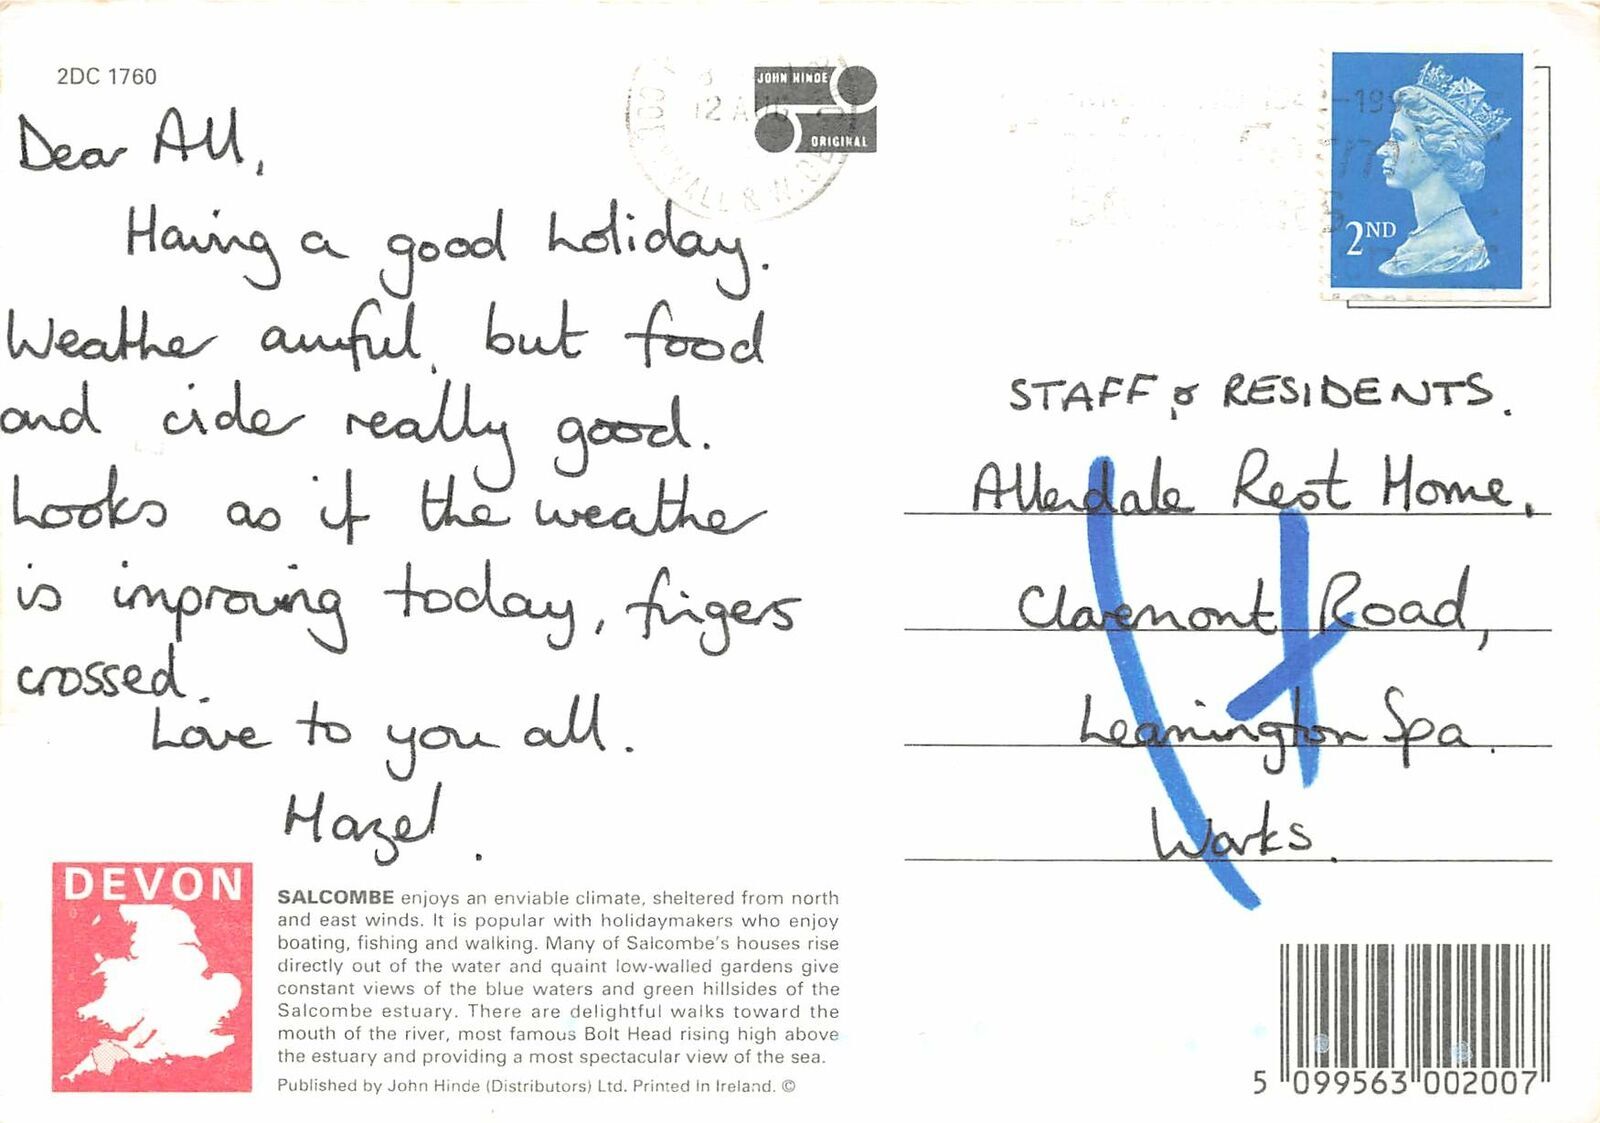 2DC 1760
Dear All,
Having a good holiday.
Weather awful, but food
and cider really good.
Looks as if the weather
is improving today, fingers
crossed.
Love to you all.
Hazel.
JOHN HINDE
ORIGINAL
12 AUG
2ND
STAFF & RESIDENTS.
Allerdale Rest Home,
Claremont Road,
Leamington Spa.
Warks.
DEVON
SALCOMBE enjoys an enviable climate, sheltered from north
and east winds. It is popular with holidaymakers who enjoy
boating, fishing and walking. Many of Salcombe's houses rise
directly out of the water and quaint low-walled gardens give
constant views of the blue waters and green hillsides of the
Salcombe estuary. There are delightful walks toward the
mouth of the river, most famous Bolt Head rising high above
the estuary and providing a most spectacular view of the sea.
Published by John Hinde (Distributors) Ltd. Printed In Ireland. ©
5 099563 002007